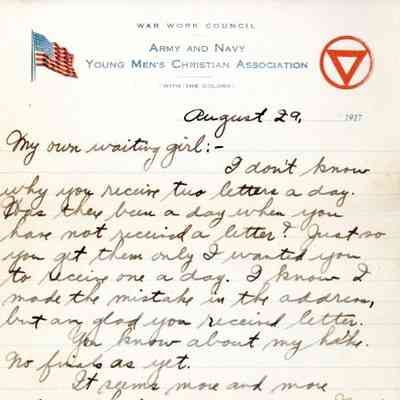 WAR WORK COUNCIL
ARMY AND NAVY
YOUNG MEN'S CHRISTIAN ASSOCIATION
"WITH THE COLORS"
August 29, 1917
My own waiting girl:-
I don't know
why you receive two letters a day.
Has they been a day when you
have not received a letter? Just so
you get them only I wanted you
to receive one a day. I know I
made the mistake in the address,
but am glad you received letter.
You know about my
No finals as yet.
It seems more and more